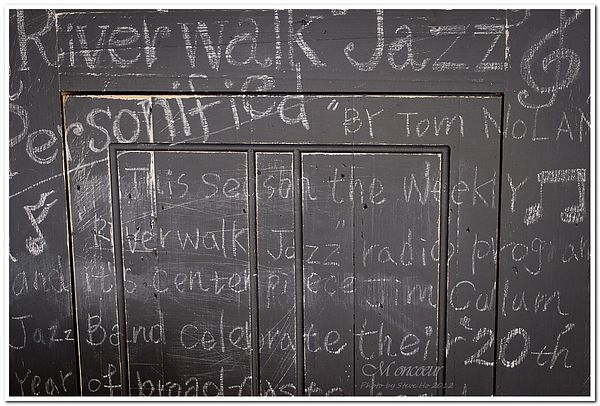 Riverwalk Jazz
Personified" BY Tom NoLAN
This season the weekly
"Riverwalk Jazz" radio program
and its centerpiece Jim Cullum
Jazz Band celebrate their 20th
Year of broad-cast
Moncoeur
Photo by Steve Ho 2012